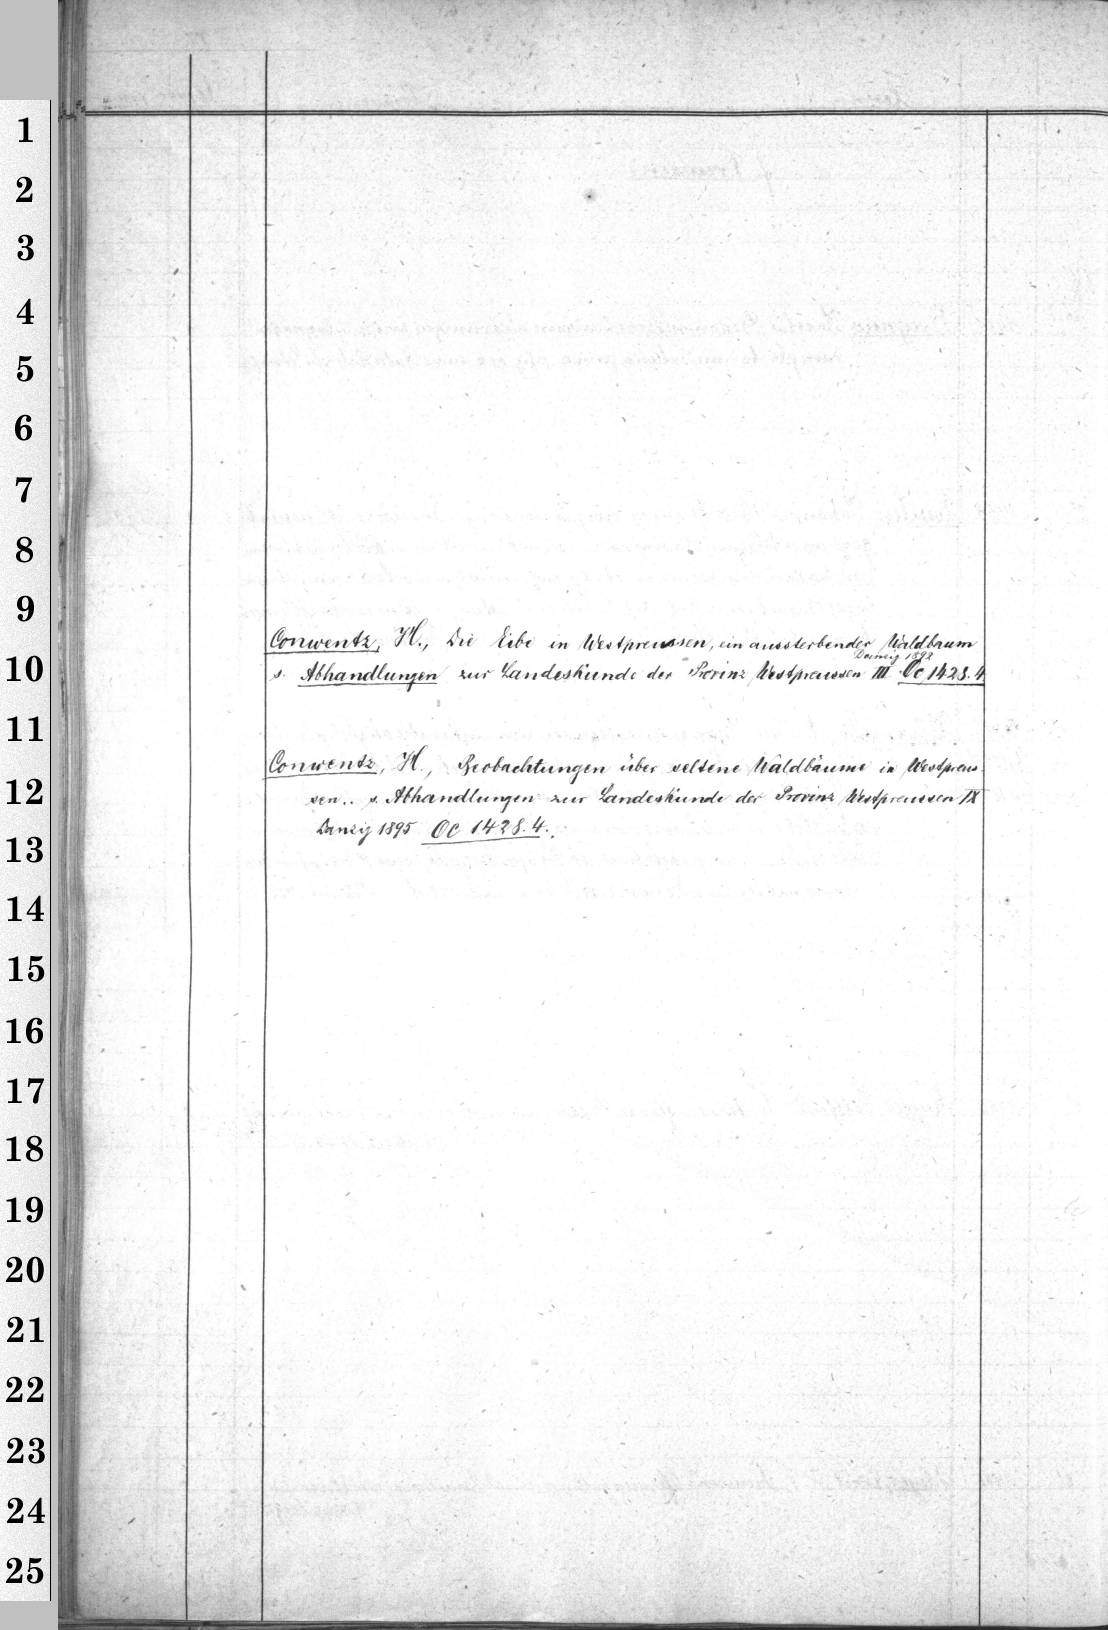 1
2
3
4
5
6
7
8
9
10
11
12
13
14
15
16
17
18
19
20
21
22
23
24
25
Conwentz, H., Die Eibe in Westpreussen, ein aussterbender Waldbaum
Danzig 1892
s. Abhandlungen zur Landeskunde der Provinz Westpreussen III Oc 1428.4
Conwentz, H., Beobachtungen über seltene Waldbäume in Westpreus-
sen.. s. Abhandlungen zur Landeskunde der Provinz Westpreussen IX
Danzig 1895 Oc 1428.4.